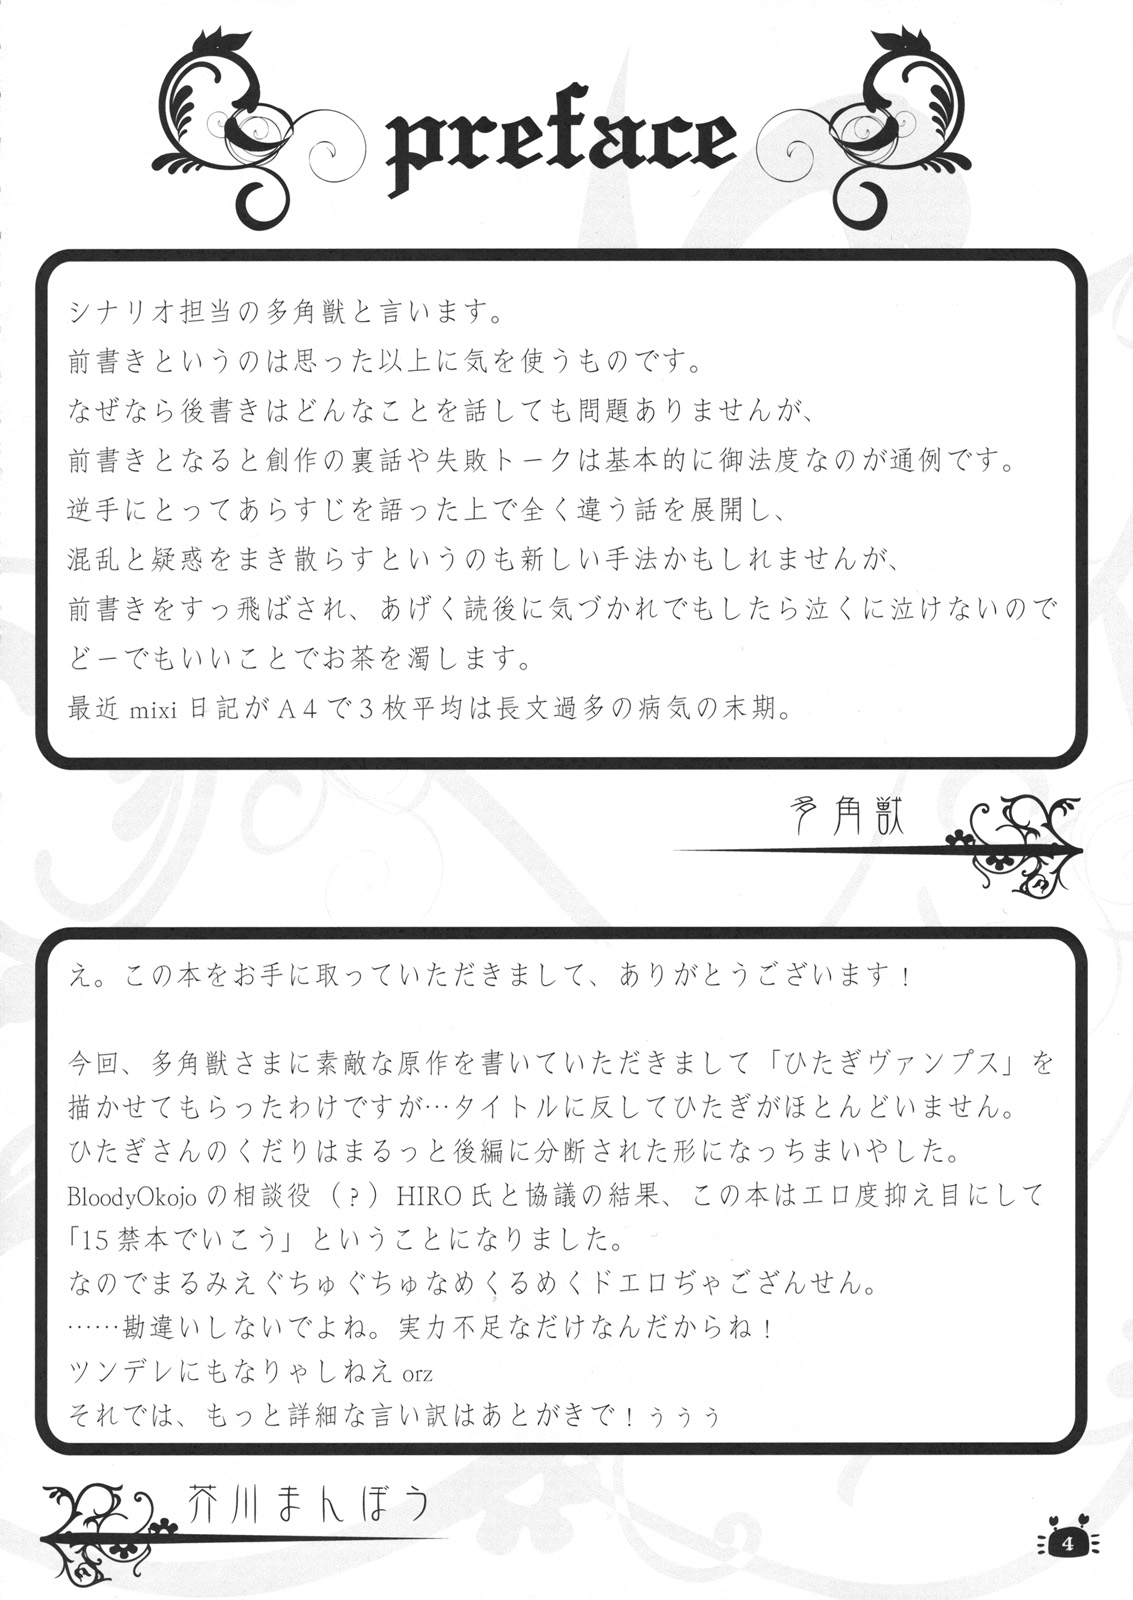 preface
シナリオ担当の多角獣と言います。
前書きというのは思った以上に気を使うものです。
なぜなら後書きはどんなことを話しても問題ありませんが、
前書きとなると創作の裏話や失敗トークは基本的に御法度なのが通例です。
逆手にとってあらすじを語った上で全く違う話を展開し、
混乱と疑惑をまき散らすというのも新しい手法かもしれませんが、
前書きをすっ飛ばされ、あげく読後に気づかれでもしたら泣くに泣けないので
どーでもいいことでお茶を濁します。
最近 mixi 日記がA4で3枚平均は長文過多の病気の末期。
多角獣
え。この本をお手に取っていただきまして、ありがとうございます！
今回、多角獣さまに素敵な原作を書いていただきまして「ひたぎヴァンプス」を
描かせてもらったわけですが…タイトルに反してひたぎがほとんどいません。
ひたぎさんのくだりはまるっと後編に分断された形になっちまいやした。
BloodyOkojo の相談役（？）HIRO 氏と協議の結果、この本はエロ度抑え目にして
「15 禁本でいこう」ということになりました。
なのでまるみえぐちゅぐちゅなめくるめくドエロぢゃござんせん。
……勘違いしないでよね。実力不足なだけなんだからね！
ツンデレにもなりゃしねえ orz
それでは、もっと詳細な言い訳はあとがきで！ぅぅぅ
芥川まんぼう
4